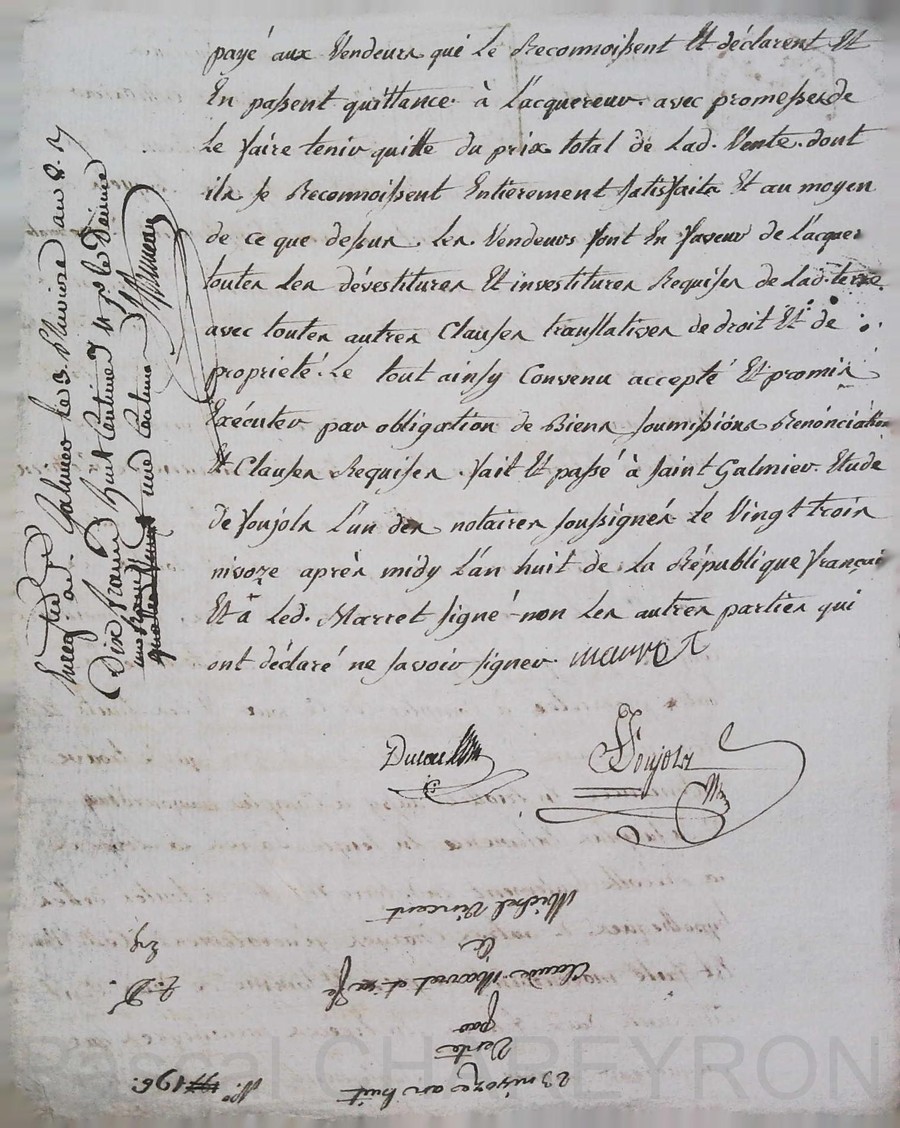 payé aux Vendeurs qui Le Reconnoissent Et déclarent Et
En passent quittance à L'acquereur avec promesse de
Le faire tenir quitte du prix total de Lad. Vente. dont
ils se Reconnoissent Entièrement satisfaits Et au moyen
de ce que dessus Les Vendeurs font En faveur de L'acquer
toutes Les dévestitures Et investitures Requises de Lad. terre
avec toutes autres Clauses translatives de droit Et de
proprieté. Le tout ainsy Convenu accepté Et promis
Exécuter par obligation de Biens soumissions Renonciation
Et Clauses Requises. fait Et passé à Saint Galmier. Etude
de foujols L'un des notaires soussignés Le Vingt trois
nivoze après midy L'an huit de La République françai
Et à Led. Marret signé non Les autres parties qui
ont déclaré ne savoir signer. marret
Foujols
Enregistré à St Galmier Le 3. Pluviose an 8. R
Dix francs huit Centimes
23 nivoze an huit
N.° 196.
Vente
par
Claude Marret et sa fe
à
Michel Vincent